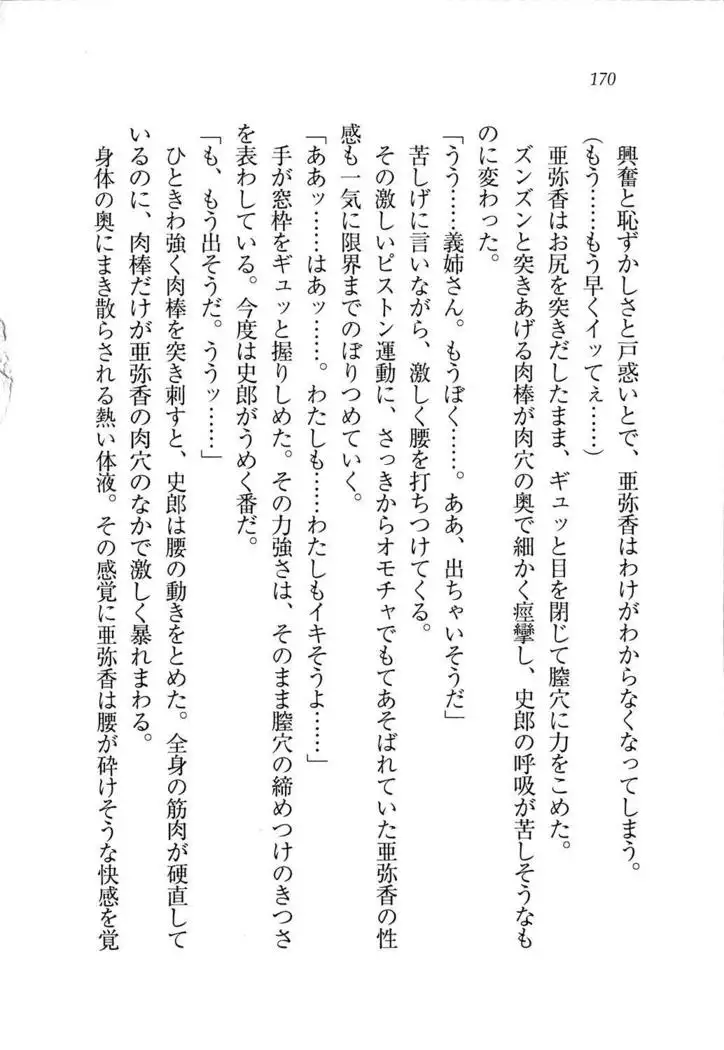 170
興奮と恥ずかしさと戸惑いとで、亜弥香はわけがわからなくなってしまう。
(もう……もう早くイッてぇ……)
亜弥香はお尻を突きだしたまま、ギュッと目を閉じて膣穴に力をこめた。
ズンズンと突きあげる肉棒が肉穴の奥で細かく痙攣し、史郎の呼吸が苦しそうなも
のに変わった。
「うう……義姉さん。もうぼく……。ああ、出ちゃいそうだ」
苦しげに言いながら、激しく腰を打ちつけてくる。
その激しいピストン運動に、さっきからオモチャでもてあそばれていた亜弥香の性
感も一気に限界までのぼりつめていく。
「ああッ……はあッ……。わたしも……わたしもイキそうよ……」
手が窓枠をギュッと握りしめた。その力強さは、そのまま膣穴の締めつけのきつさ
を表わしている。今度は史郎がうめく番だ。
「も、もう出そうだ。ううッ……」
ひときわ強く肉棒を突き刺すと、史郎は腰の動きをとめた。全身の筋肉が硬直して
いるのに、肉棒だけが亜弥香の肉穴のなかで激しく暴れまわる。
身体の奥にまき散らされる熱い体液。その感覚に亜弥香は腰が砕けそうな快感を覚